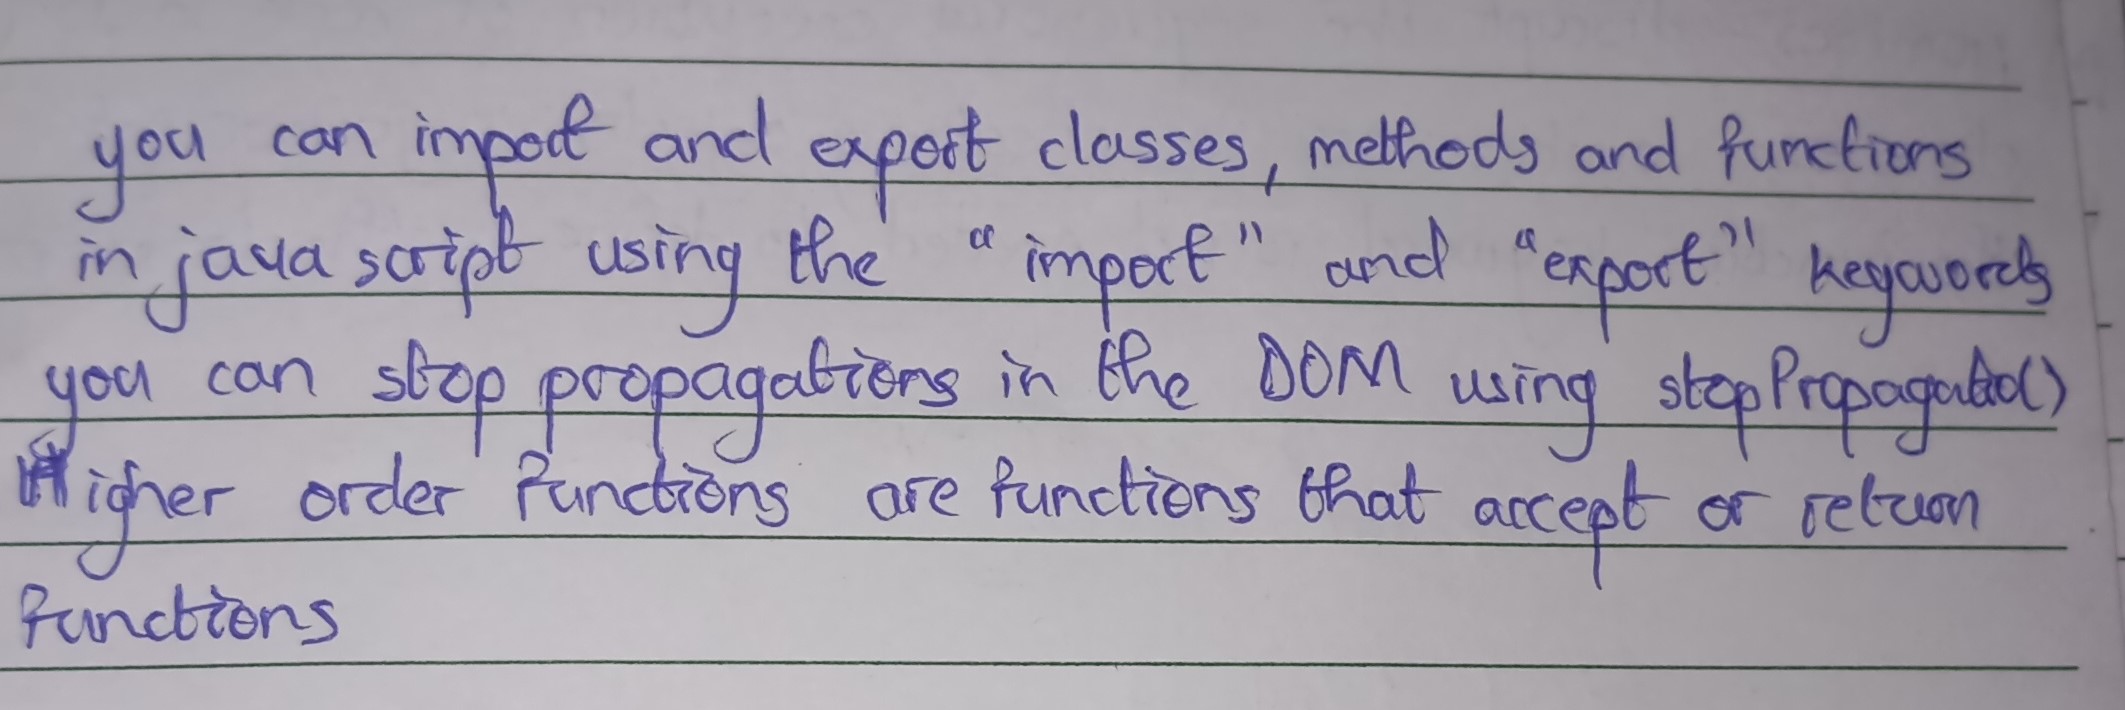 you can import and export classes, methods and functions
in java script using the "import" and "export" keywords
you can stop propagations in the DOM using stopPropagatio()
Higher order functions are functions that accept or return
functions